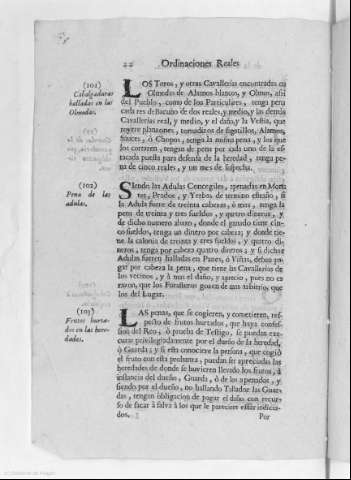 22 Ordinaciones Reales
(101)
Cabalgaduras
halladas en las
Olmedas.
LOS Toros, y otras Cavallerias encontradas en
Olmedas de Alamos blancos, y Olmos, assi
del Pueblo, como de los Particulares, tenga pena
cada res de Bacuño de dos reales, y medio, y las demàs
Cavallerias real, y medio, y el daño, y la Vestia, que
royere plançones,
Sauces, ò Chopos, tenga la misma pena, y los que
los cortaren, tengan de pena por cada uno de la es-
tacada puesta para defensa de la heredad, tenga pe-
na de cinco reales, y un mes de suspecha.
(102)
Pena de las
adulas.
SIendo las Adulas Concegiles, apenadas en Mon-
tes, Prados, y Yerbas de termino estraño, si
la Adula fuere de treinta cabezas, ò mas, tenga la
pena de treinta y tres sueldos, y quatro dineros, y
de dicho numero abaxo, donde el ganado tiene cin-
co sueldos, tenga un dinero por cabeza; y donde tie-
ne la calonia de treinta y tres sueldos, y quatro di-
neros, tenga por cabeza quatro dineros; y si dichas
Adulas fueren halladas en Panes, ò Viñas, deban pa-
gar por cabeza la pena, que tiene las Cavallerias de
los vecinos, y à mas el daño, y aprecio, pues no es
razon, que los Forasteros gocen de mas arbitrio, que
los del Lugar.
(103)
Frutos hurta-
dos en las here-
dades.
LAS penas, que se cogieren, y cometieren, res-
pecto de frutos hurtados, que haya confes-
sion del Reo, ò prueba de Testigo, se puedan exe-
cutar privilegiadamente por el dueño de la heredad,
ò Guarda; y si esta conociere la persona, que cogiò
el fruto con esta probanza, puedan ser apreciadas las
heredades de donde se huvieren llevado los frutos, à
instancia del dueño, Guarda, ò de los apenados, y
siendo por el dueño, no hallando Tallador las Guar-
das, tengan obligacion de pagar el daño con recur-
so de sacar à salvo à los que le pareciere están indicia-
dos.
Por